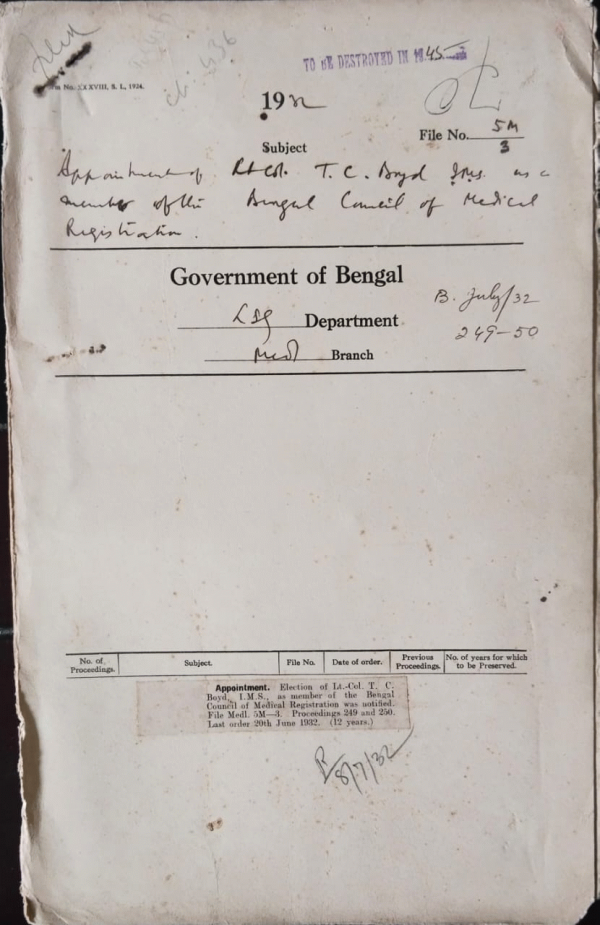 Filed
Form No. XXXVIII, S. I., 1924.
TO BE DESTROYED IN 1945
1932
File No. 5M
3
Subject
Appointment of Lt Col. T. C. Boyd I.M.S. as a
member of the Bengal Council of Medical
Registration.
Government of Bengal
LSG Department
Medl Branch
B. July/32
249-50
No. of Proceedings. Subject. File No. Date of order. Previous Proceedings. No. of years for which to be Preserved.
Appointment. Election of Lt.-Col. T. C.
Boyd, I.M.S., as member of the Bengal
Council of Medical Registration was notified.
File Medl. 5M—3. Proceedings 249 and 250.
Last order 20th June 1932. (12 years.)
8/7/32